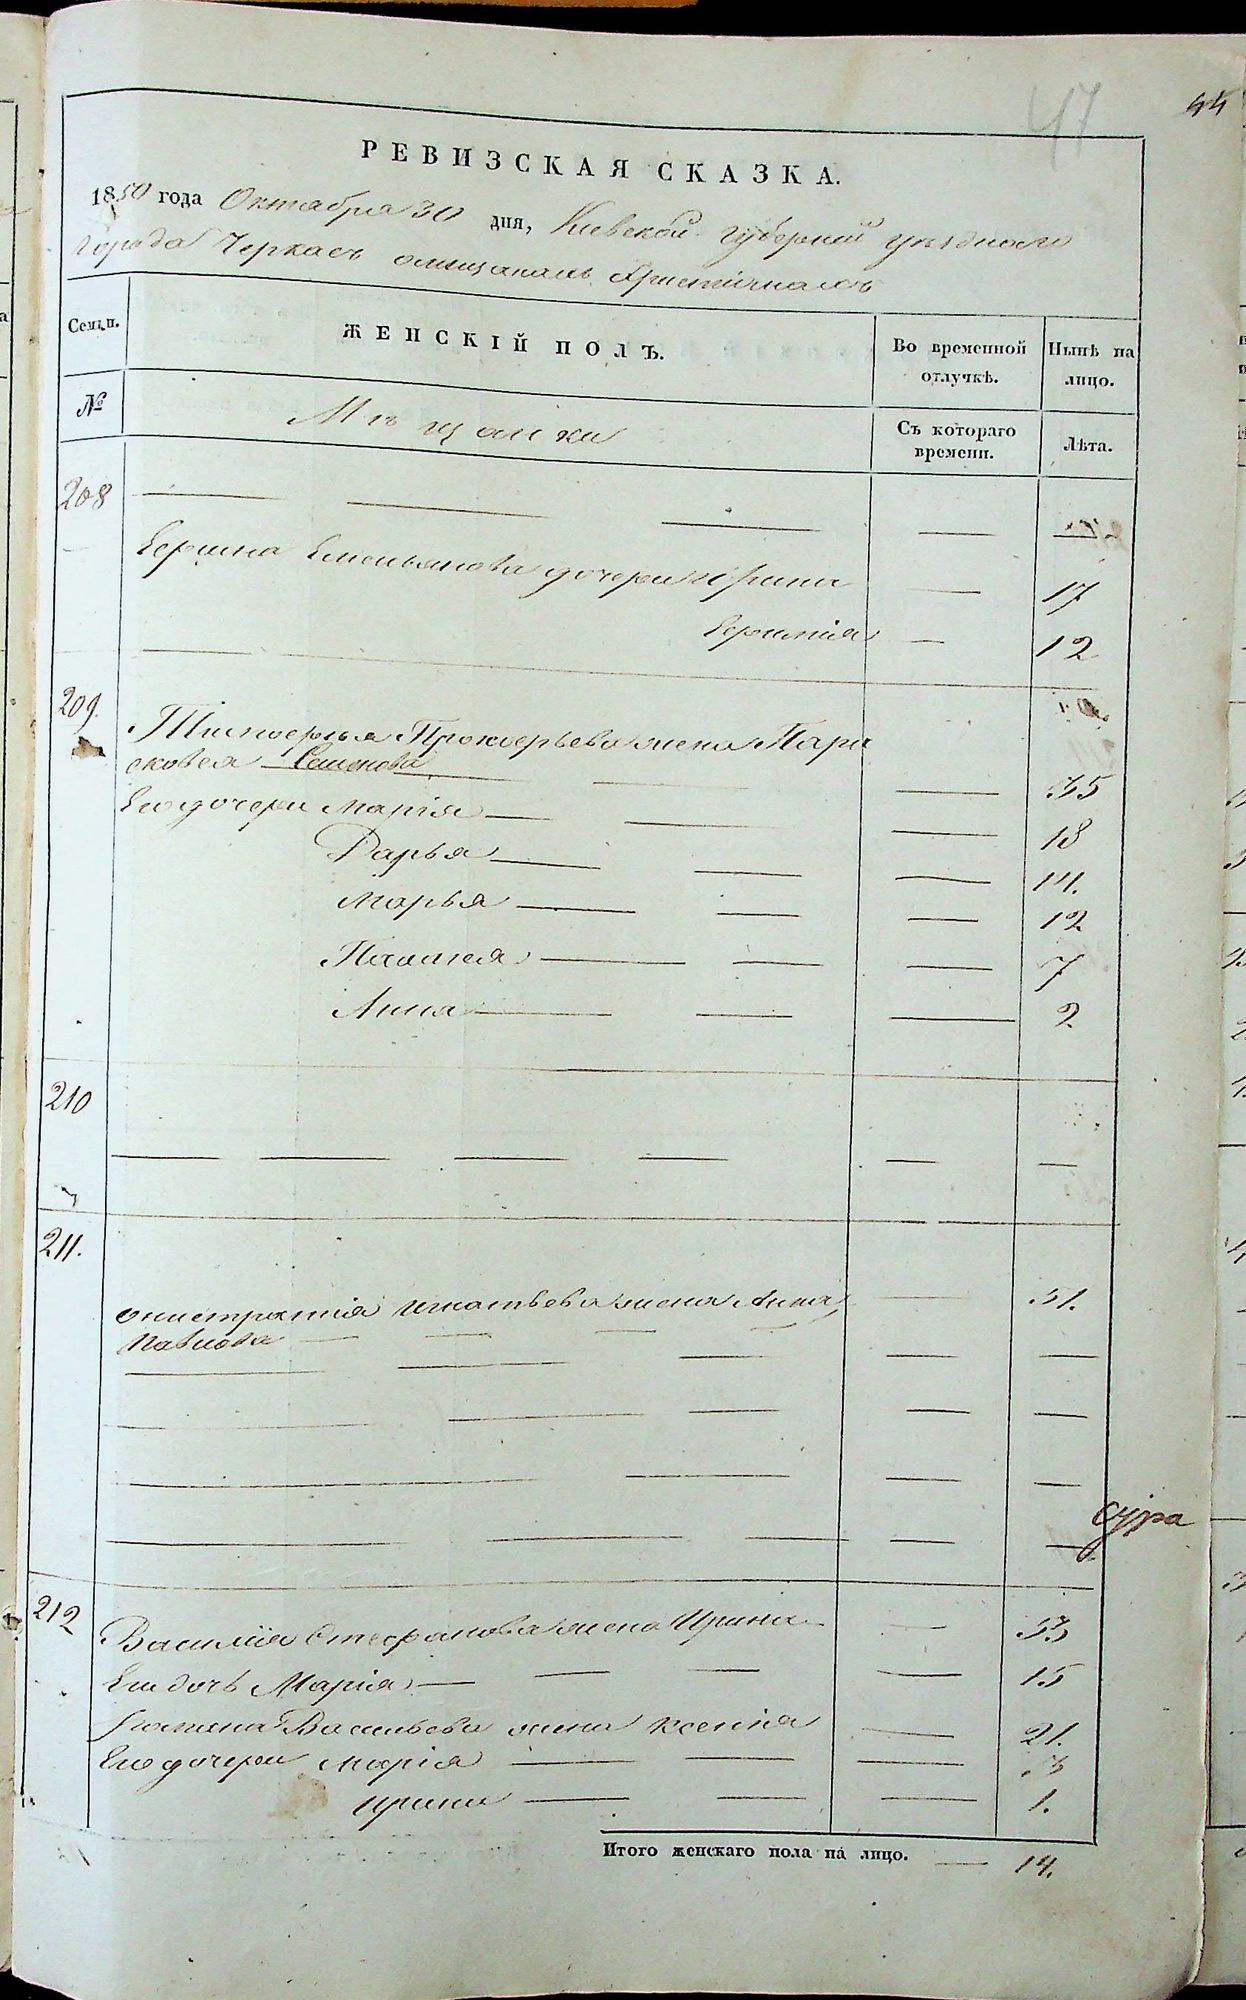 47
44
РЕВИЗСКАЯ СКАЗКА.
1850 года Октября 30 дня, Киевской губернии уезднаго
города Черкасъ
Семьи.
ЖЕНСКІЙ ПОЛЪ.
Во временной отлучкѣ.
Нынѣ на лицо.
№
Мѣщанки
Съ котораго времени.
Лѣта.
208
Емельянова дочери Ирина 17
12
209.
Тимофея Прокофьева жена Пара
сковея Семенова 35
Его дочери Марія 18
Дарья 14.
Марья 12
7
Анна 2
210
211.
Игнатьева жена Анна 31.
Павлова
212
Василія Стефанова жена Ирина 53
Его дочь Марія 15
Васильева жена Ксенія 21.
Его дочери Марія 3
Ирина 1.
Итого женскаго пола на лицо. 14.